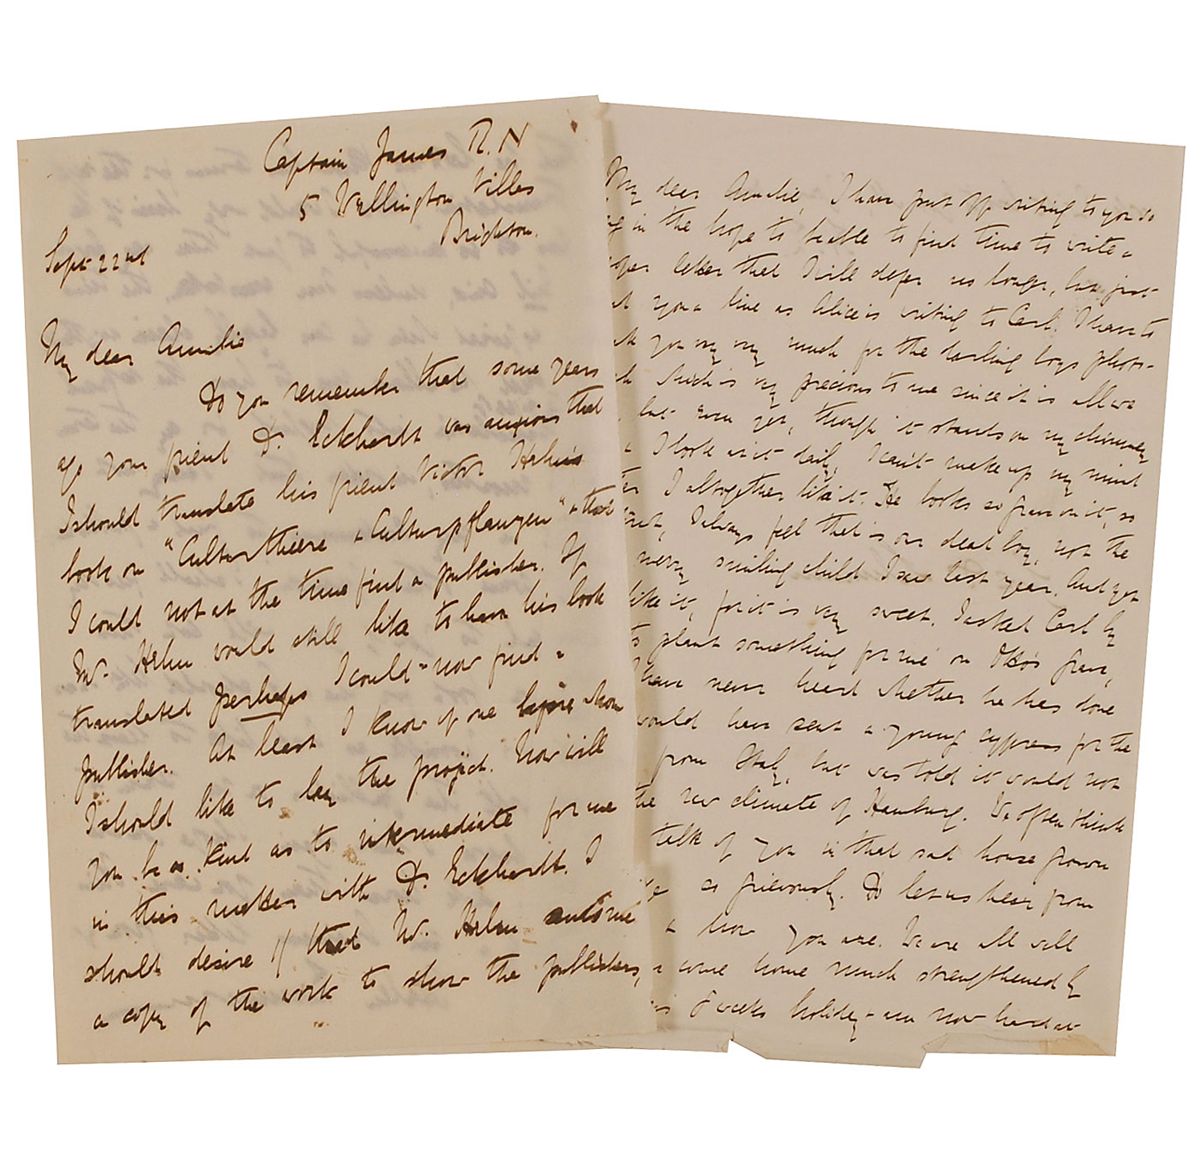 Captain James R.N
5 Wellington Villas
Brighton.
Sept 22nd
My dear Amelie
Do you remember that some years
ago your friend Dr. Eckhardt was anxious that
I should translate his friend Victor Hehn's
book on "Culturthiere & Culturpflanzen" & that
I could not at the time find a publisher. If
Mr. Hehn would still like to have his book
translated perhaps I could now find a
publisher. At least I know of one before whom
I should like to lay the project. Now will
you be as kind as to intermediate for me
in this matter with Dr. Eckhardt. I
should desire if that Mr. Hehn
a copy of the work to show the publishers,
My dear Amelie, I have put off writing to you so
in the hope to be able to find time to write a
letter that I will defer no longer, but just
you a line as Alice is writing to Carl. I have to
you very very much for the darling boys photo-
which is very precious to me since it is all we
but even yet, though it stands on my chimney
I look at it daily, I can't make up my mind
I altogether like it. He looks so grave on it, so
I always feel that is our dead boy, not the
merry smiling child I saw last year. And yet
like it, for it is very sweet. I asked Carl by
to plant something for me on Otto's grave,
have never heard whether he has done
would have sent a young cypress for the
from Italy, but was told it would not
the raw climate of Hamburg. We often think
talk of you in that sad house grown
so grievously. Do let us hear from
how you are. We are all well
come home much strengthened by
8 weeks holiday - are now hard at